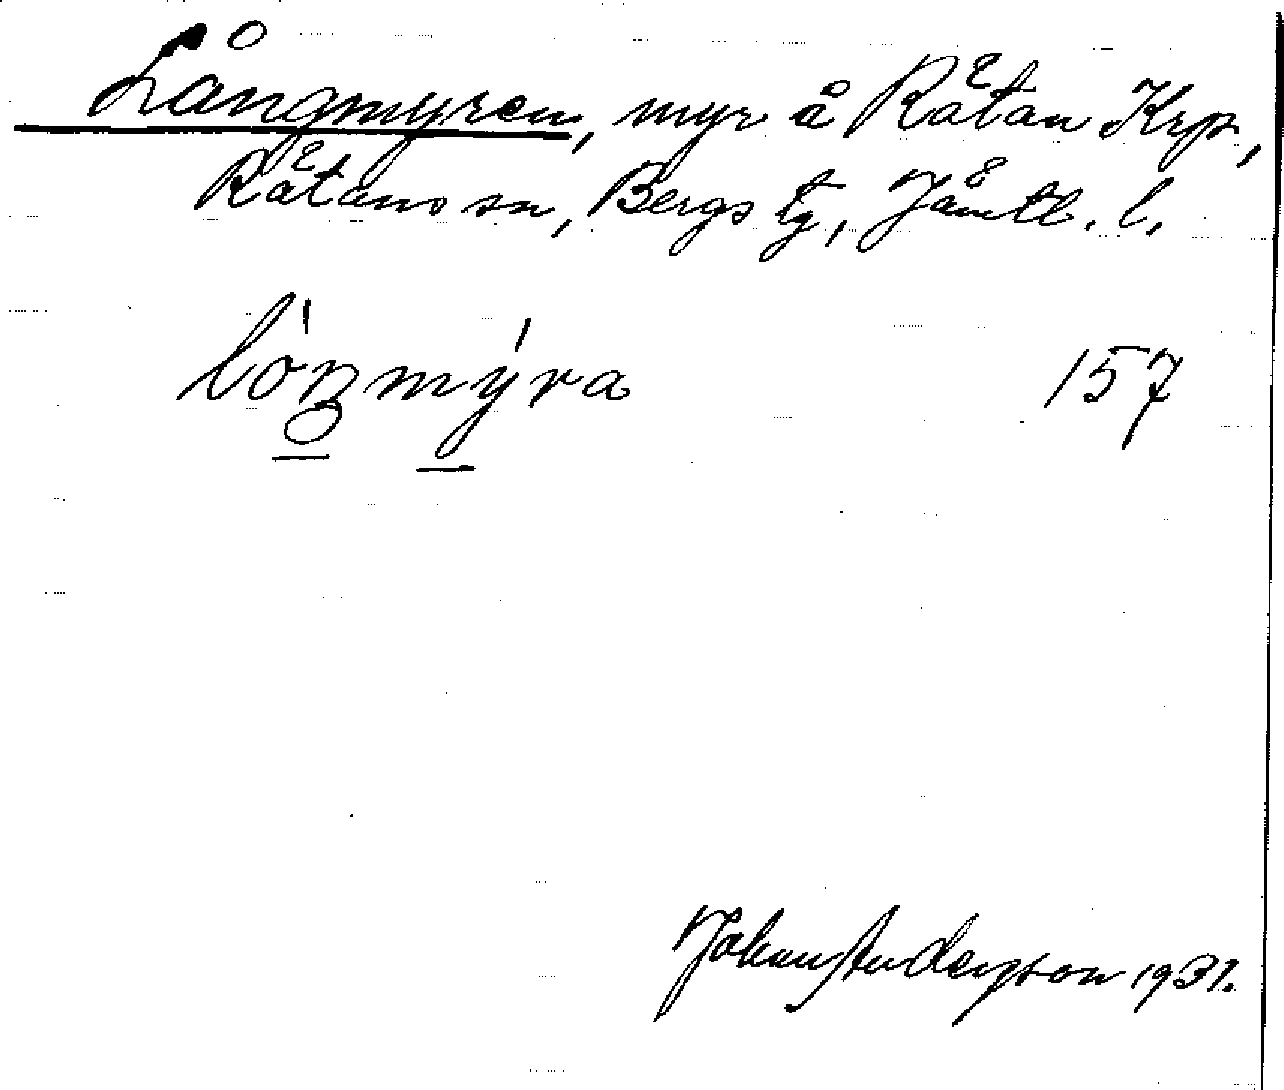 Långmyren, myr å Rätan Krp,
Rätans sn, Bergs tg, Jämtl. l.
157
Johan Anderson 1931.